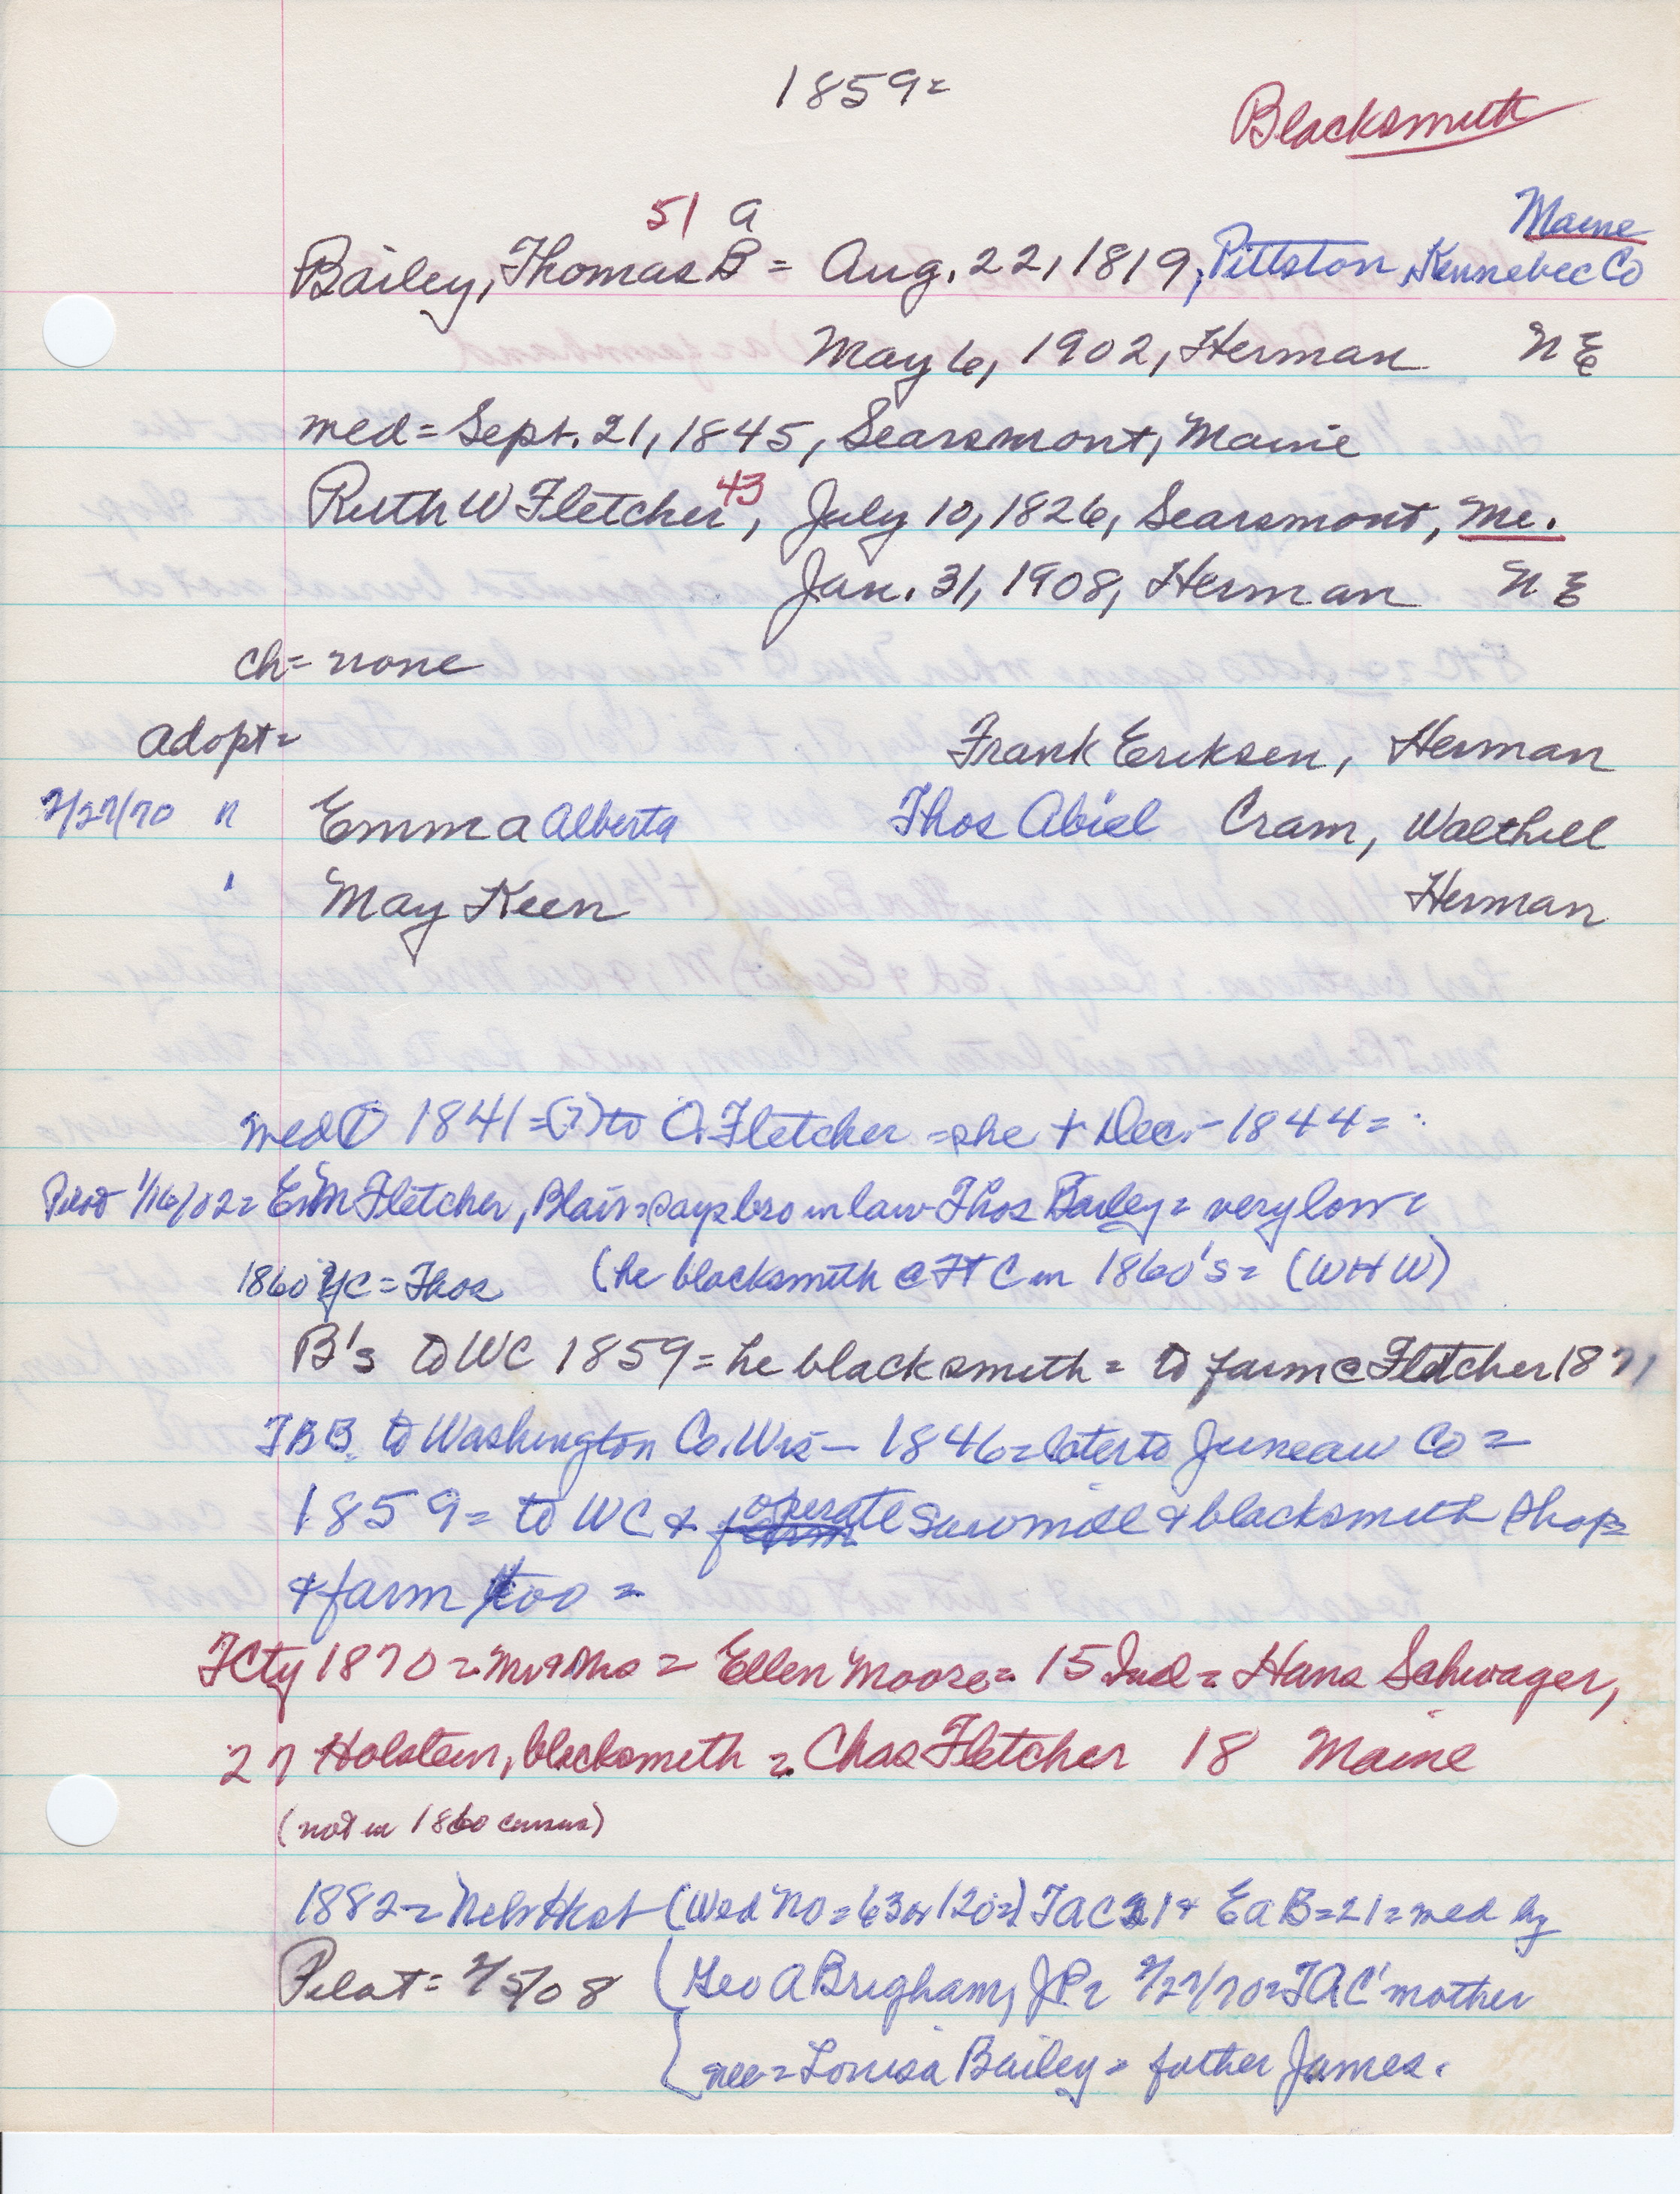 1859=
Blacksmith
51 a
Maine
Bailey, Thomas B = Aug. 22, 1819, Pittston, Kennebec Co
May 6, 1902, Herman NE
med = Sept. 21, 1845, Searsmont, Maine
Ruth W Fletcher 43, July 10, 1826, Searsmont, Me.
Jan. 31, 1908, Herman NE
ch = none
adopt = Frank Eriksen, Herman
2/27/70 " Emma Alberta Thos Abiel Cram, Walthill
" May Keen Herman
med ① 1841 = (?) to O. Fletcher = she + Dec. - 1844 =
Pilot 1/16/02 = Fletcher, Blair = says bro in law Thos Bailey = very low =
1860 = Thos (he blacksmith @ Ft C in 1860's = (WHW)
B's to WC 1859 = he blacksmith = to farm @ Fletcher 1871
TBB. to Washington Co. Wis - 1846 = later to Juneau Co =
1859 = to WC & operate sawmill & blacksmith shop =
& farm too =
FCty 1870 = Mr & Mrs = Ellen Moore = 15 Ind = Hans Schwager,
27 Holstein, blacksmith = Chas Fletcher 18 Maine
(not in 1860 census)
1882 = Neb Hist (Wed No = 63 or 120 =) TAC 21 & EAB = 21 = med by
Pilot = 2/5/08 (Geo A Brigham, JP = 2/27/70 = TAC' mother
nee = Louisa Bailey = father James.